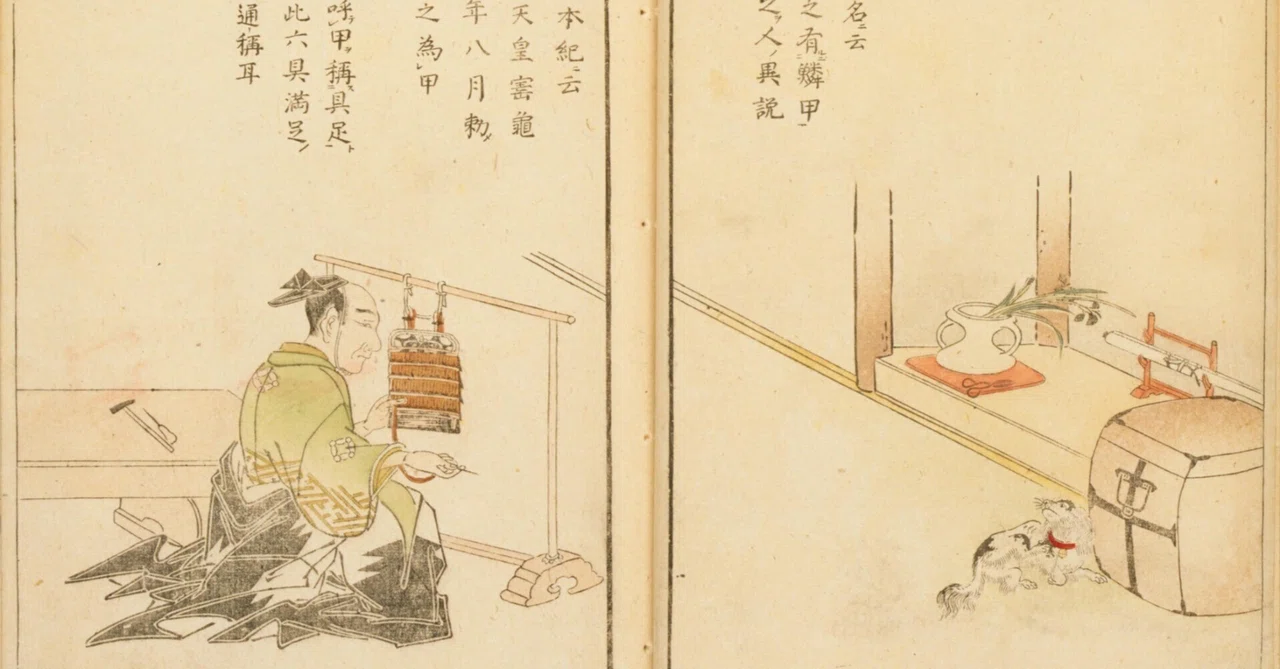 名ニ云
之有鱗甲
之人ノ異説
本紀ニ云
天皇寳龜
年八月勅
之為甲
呼甲稱具足
此六具満足
通稱耳